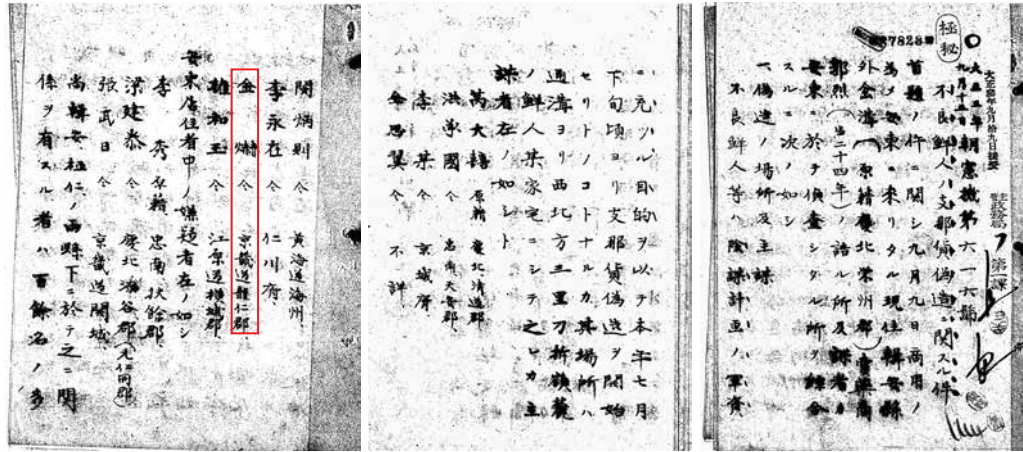 極秘
大正三年九月拾九日接受
主管政務局
第一課
大正三年
九月十五日朝憲機第六一六號
不良鮮人ノ支那貨偽造ニ関スル件
首題ノ件ニ関シ九月九日商用ノ
為メ安東ニ来リタル現住輯安縣
外金溝(原籍慶北栄州郡)賣藥商
郭烈(當二十四年)ノ語ル所及諜者ヲ
安東ニ於テ偵査シタル所ヲ綜合
スルニ次ノ如シ
一偽造ノ場所及主謀
不良鮮人等ハ陰謀計画ノ軍資
ニ充ツル目的ヲ以テ本年七月
下旬頃ヨリ支那貨偽造ヲ開始
セリトノコトナルカ其場所ハ
通溝ヨリ西北方三里刀折嶺麓
ノ鮮人某家宅ニシテ之レカ主
謀者左ノ如シト
萬大 原籍 慶北清道郡
洪學國 仝 忠南天安郡
李某 仝 京城府
金思翼 仝 不詳
閔炳則 仝 黄海道海州
李永在 仝 仁川府
金 仝 京畿道龍仁郡
雄柏玉 仝 江原道横城郡
安東居住者中ノ嫌疑者左ノ如シ
李秀 原籍 忠南扶餘郡
梁建泰 仝 慶北漆谷郡(元仁同郡)
張武日 仝 京畿道開城
尚輯安桓仁ノ両縣下ニ於テ之ニ関
係ヲ有スル者ハ百餘名ノ多